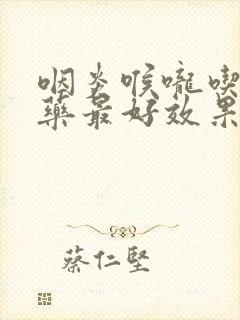 咽炎喉嚨喫
藥最好效果
蔡仁堅